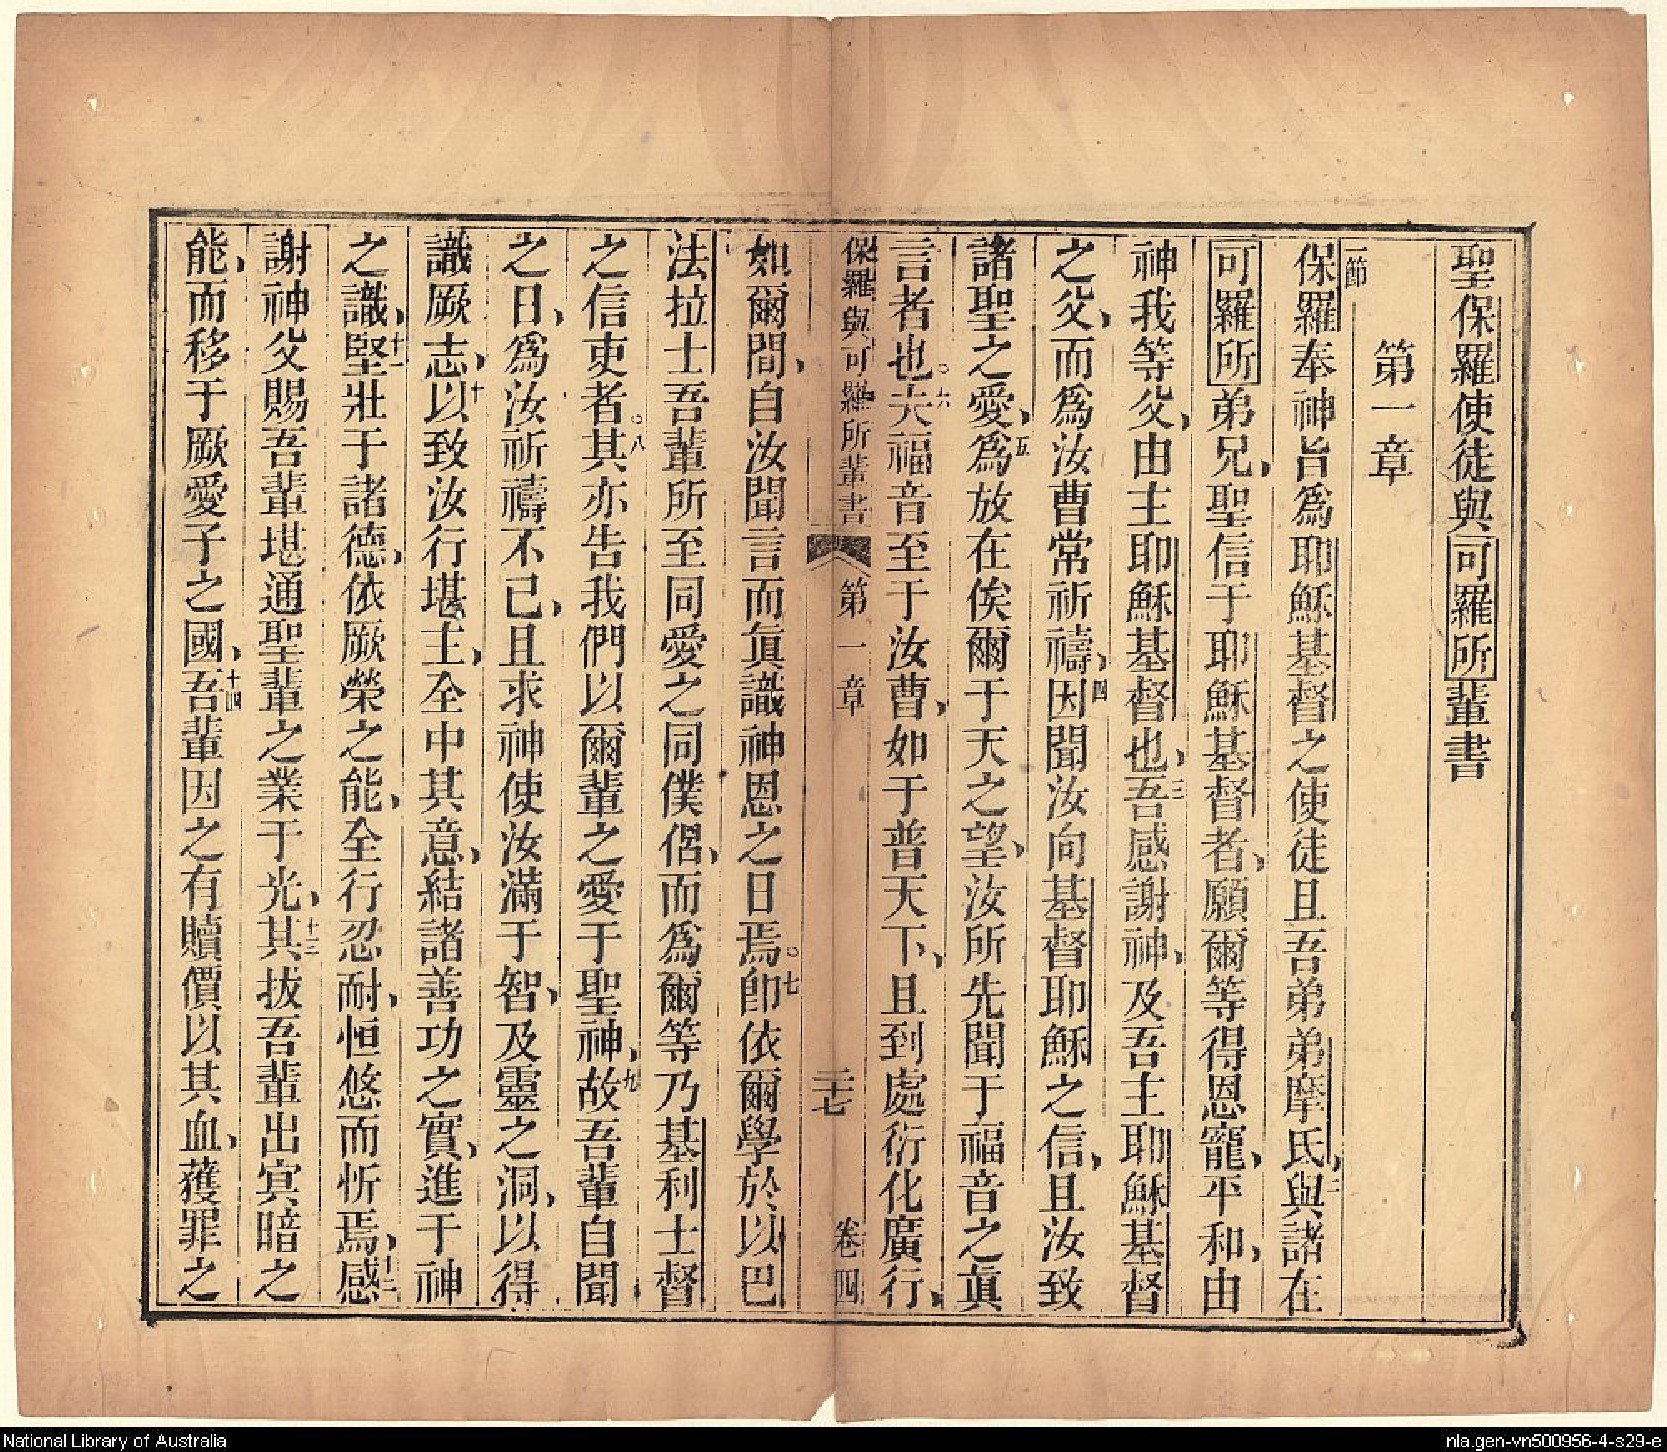 聖保羅使徒與可羅所輩書
第一章
一節
保羅奉神旨爲耶穌基督之使徒且吾弟弟摩氏、二與諸在
可羅所弟兄、聖信于耶穌基督者、願爾等得恩寵、平和、由
神我等父、由主耶穌基督也、三吾感謝神、及吾主耶穌基督
之父、而爲汝曹常祈禱、四因聞汝向基督耶穌之信、且汝致
諸聖之愛、五爲放在俟爾于天之望、汝所先聞于福音之眞
言者也。六夫福音至于汝曹、如于普天下、且到處衍化廣行、
保羅與可羅所輩書 第一章 二十七 卷四
如爾間、自汝聞言而眞識神恩之日焉。七卽依爾學於以巴
法拉士吾輩所至同愛之同僕侶、而爲爾等乃基利士督
之信吏者。八其亦告我們以爾輩之愛于聖神、九故吾輩自聞
之日、爲汝祈禱不已、且求神使汝滿于智、及靈之洞、以得
識厥志、十以致汝行堪主、全中其意、結諸善功之實、進于神
之識、十一堅壯于諸德、依厥榮之能、全行忍耐、恒悠而忻焉、十二感
謝神父賜吾輩堪通聖輩之業于光、十三其拔吾輩出冥暗之
能、而移于厥愛子之國、十四吾輩因之有贖價以其血、獲罪之
National Library of Australia
nla.gen-vn500956-4-s29-e